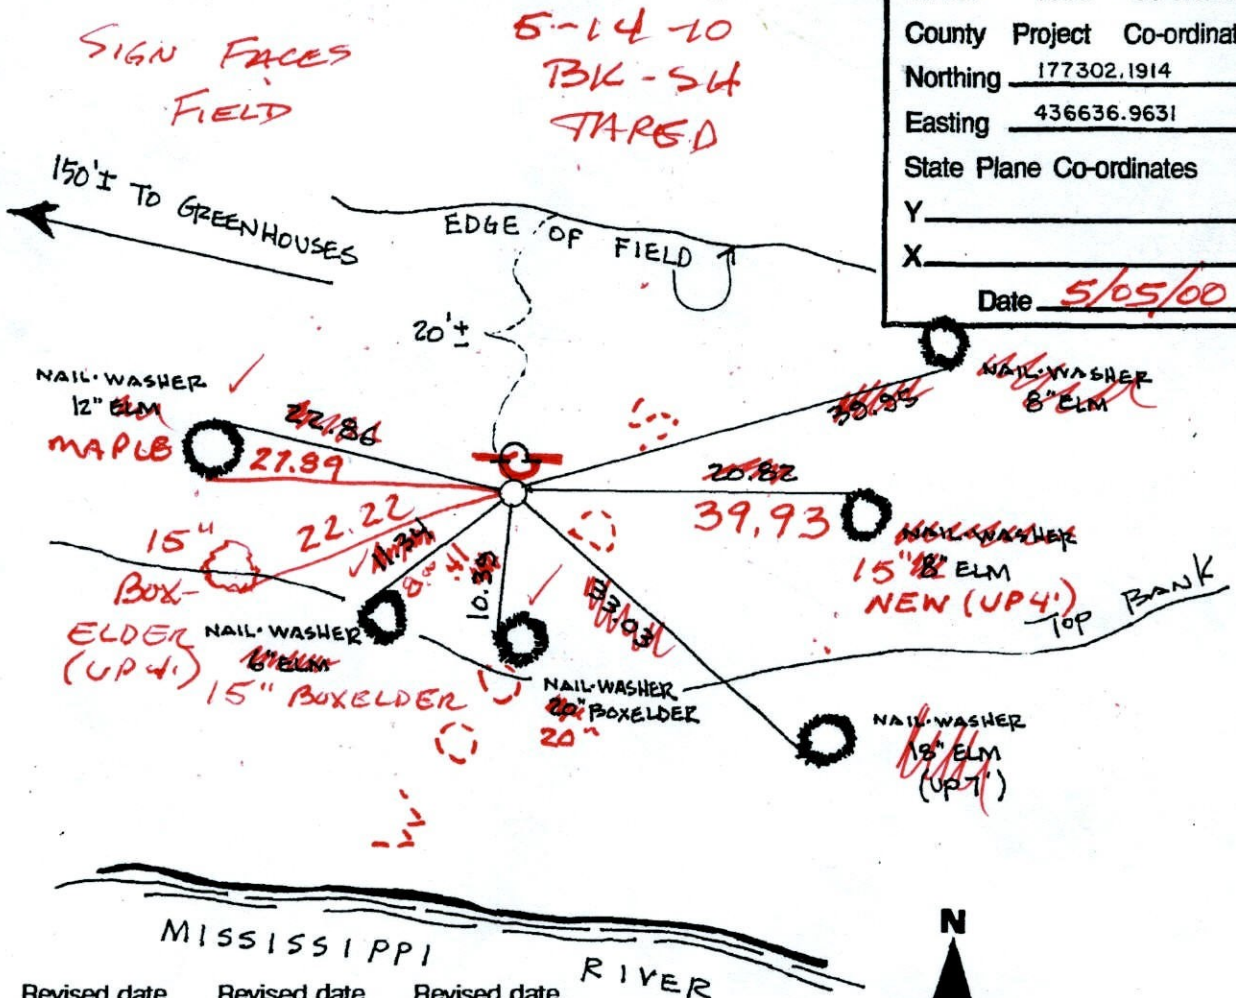 SIGN FACES
FIELD
5-14-10
BK-SH
TARED
County Project Co-ordinat
Northing 177302.1914
Easting 436636.9631
State Plane Co-ordinates
Y
X
Date 5/05/00
150'± TO GREENHOUSES
EDGE OF FIELD
20'±
NAIL·WASHER
12" ELM
MAPLE
22.86
27.89
NAIL·WASHER
8" ELM
39.95
20.82
39.93
NAIL·WASHER
15" 8" ELM
NEW (UP 4')
TOP BANK
22.22
15"
BOX-
ELDER
(UP 4')
11.34
10.39
33.03
NAIL·WASHER
6" ELM
15" BOXELDER
NAIL·WASHER
20" BOXELDER
20"
NAIL·WASHER
18" ELM
(UP 7')
MISSISSIPPI RIVER
N
Revised date Revised date Revised date